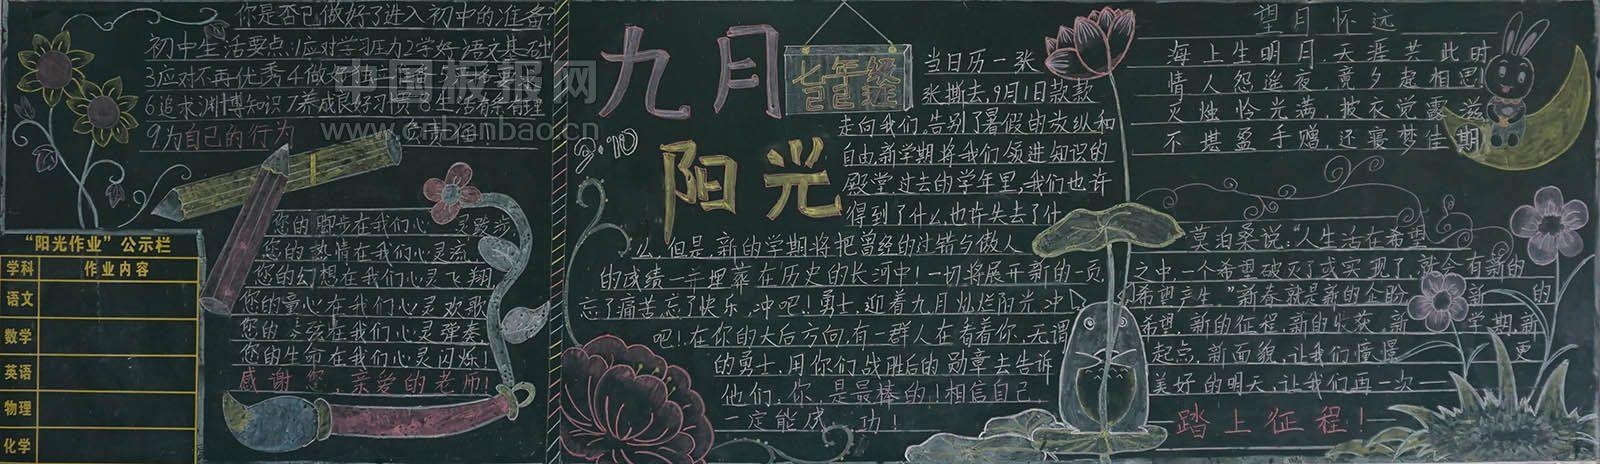 你是否已做好了进入初中的准备
初中生活要点:1应对学习压力2学好语文基础
3应对不再优秀4做好
6追求渊博知识7养成良好习惯8生活有条有理
9为自己的行为负责任!
中国板报网
www.cnbanbao.cn
您的脚步在我们心灵跋步
您的热情在我们心灵流
您的幻想在我们心灵飞翔
您的童心在我们心灵欢歌
您的 弦在我们心灵弹奏
您的生命在我们心灵闪烁!
感谢您,亲爱的老师!
“阳光作业”公示栏
学科 作业内容
语文
数学
英语
物理
化学
九月
阳光
9.10
七年级
巴巴班
当日历一张
张撕去,9月1日款款
走向我们,告别了暑假的放纵和
自由,新学期将我们领进知识的
殿堂.过去的学年里,我们也许
得到了什么,也许失去了什
么,但是,新的学期将把曾经的过错与傲人
的成绩一并埋葬在历史的长河中!一切将展开新的一页,
忘了痛苦,忘了快乐,冲吧!勇士,迎着九月灿烂阳光,冲
吧!在你的大后方向,有一群人在看着你,无谓
的勇士,用你们战胜后的勋章去告诉
他们,你,是最棒的!相信自己,
一定能成功!
望月怀远
海上生明月,天涯共此时
情人怨遥夜,竟夕起相思!
灭烛怜光满,披衣觉露滋
不堪盈手赠,还寝梦佳期
莫泊桑说:“人生活在希望
之中,一个希望破灭了或实现了,就会有新的
希望产生.”新春就是新的企盼,新的
希望,新的征程,新的收获,新学期,新
起点,新面貌,让我们憧憬更
美好的明天,让我们再一次
踏上征程!